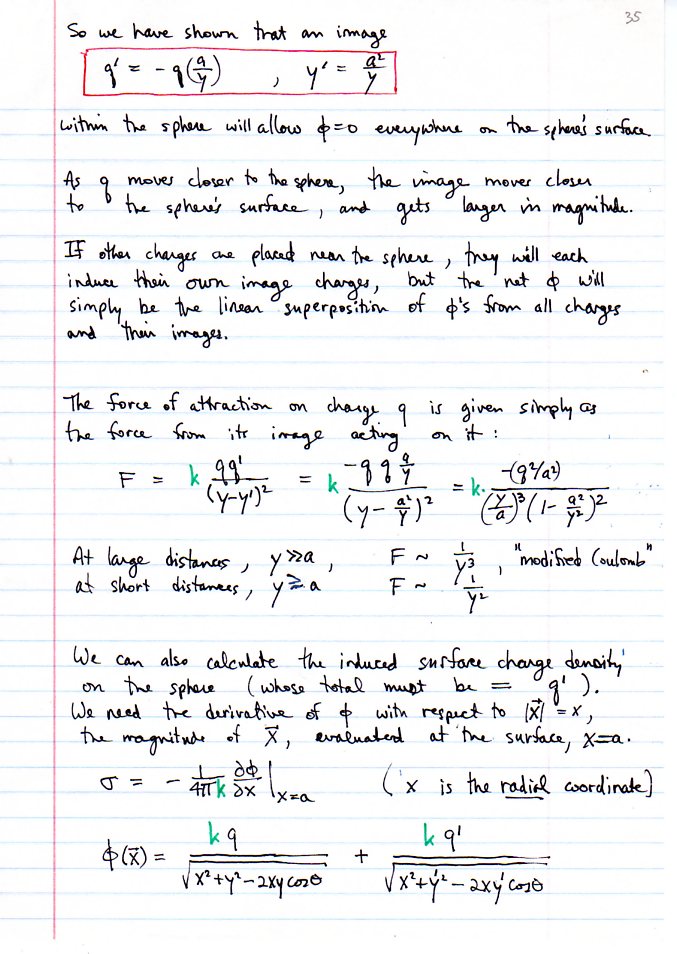 35
So we have shown that an image
q' = -q(a/y) , y' = a²/y
within the sphere will allow ϕ=0 everywhere on the sphere's surface
As q moves closer to the sphere, the image moves closer
to the sphere's surface, and gets larger in magnitude.
If other charges are placed near the sphere, they will each
induce their own image charges, but the net ϕ will
simply be the linear superposition of ϕ's from all charges
and their images.
The force of attraction on charge q is given simply as
the force from its image acting on it:
F = k qq'/(y-y')² = k -q q a/y / (y - a²/y)² = k· -(q²/a²) / (y/a)³(1 - a²/y²)²
At large distances, y≫a, F ~ 1/y³, "modified Coulomb"
at short distances, y≳a F ~ 1/y²
We can also calculate the induced surface charge density
on the sphere (whose total must be = q').
We need the derivative of ϕ with respect to |x⃗| = x,
the magnitude of x⃗, evaluated at the surface, x=a.
σ = - 1/4πk ∂ϕ/∂x |x=a ( x is the radial coordinate)
ϕ(x⃗) = kq/√x²+y²-2xy cosθ + kq'/√x²+y'²-2xy' cosθ